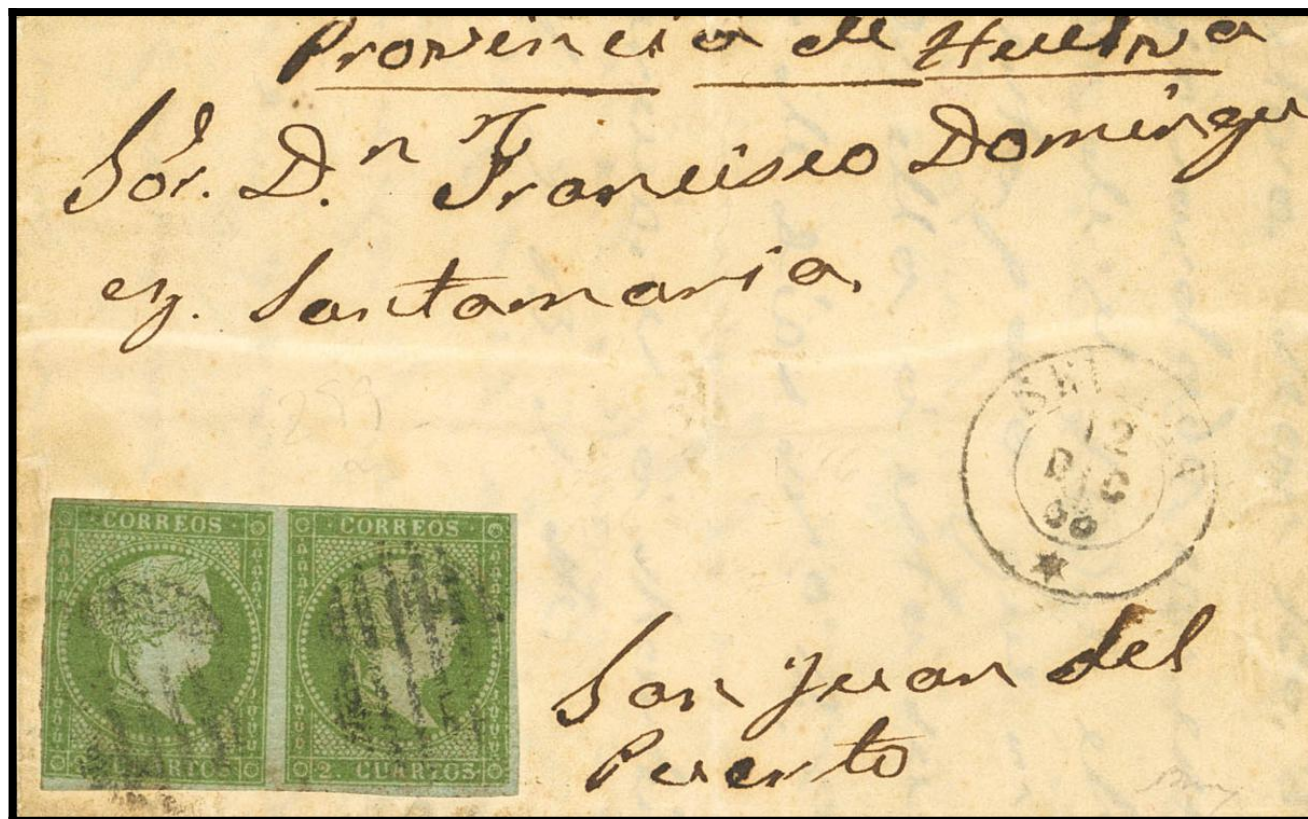 Provincia de Huelva
Sor. Dn Francisco Doming
ez. Santamaria.
SEVILLA
12
DIC
CORREOS
CORREOS
2. CUARTOS
San Juan del
Puerto